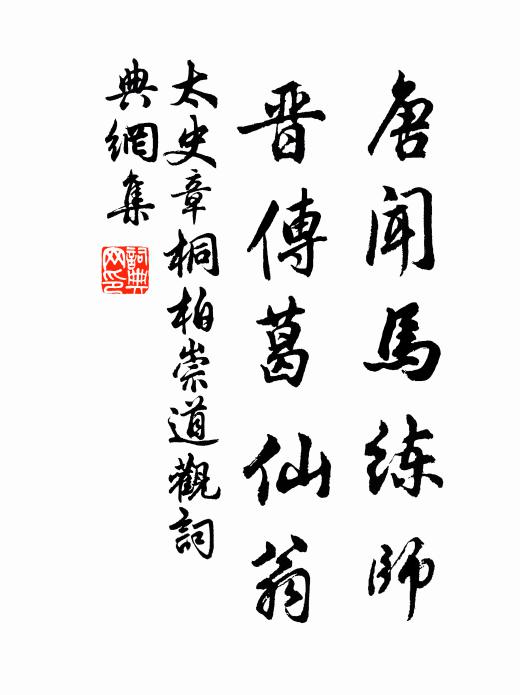 唐闻馬练師
晋傳葛仙翁
太史章桐柏崇道觀詞
典網集
詞典
网印